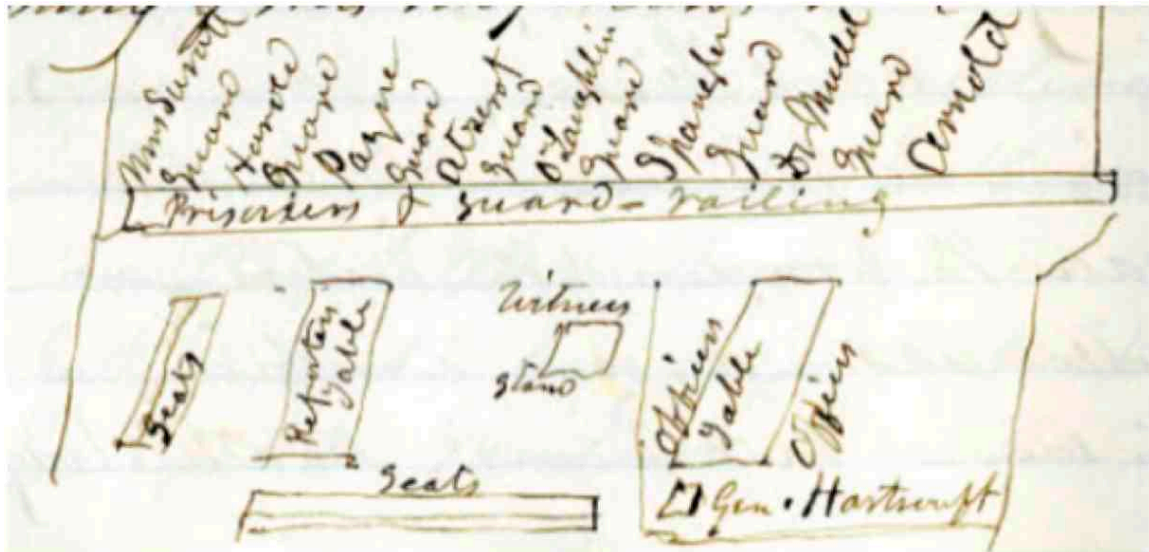 many
Mrs Suratt
Guard
Harold
Guard
Payne
Guard
Atzerot
Guard
O'Laughlin
Guard
Spangler
Guard
Dr Mudd
Guard
Arnold
Prisoners & Guard - railing
Seats
Reporters
Table
Witness
Stand
Officers
Table
Officers
Seats
Gen. Hartrunft